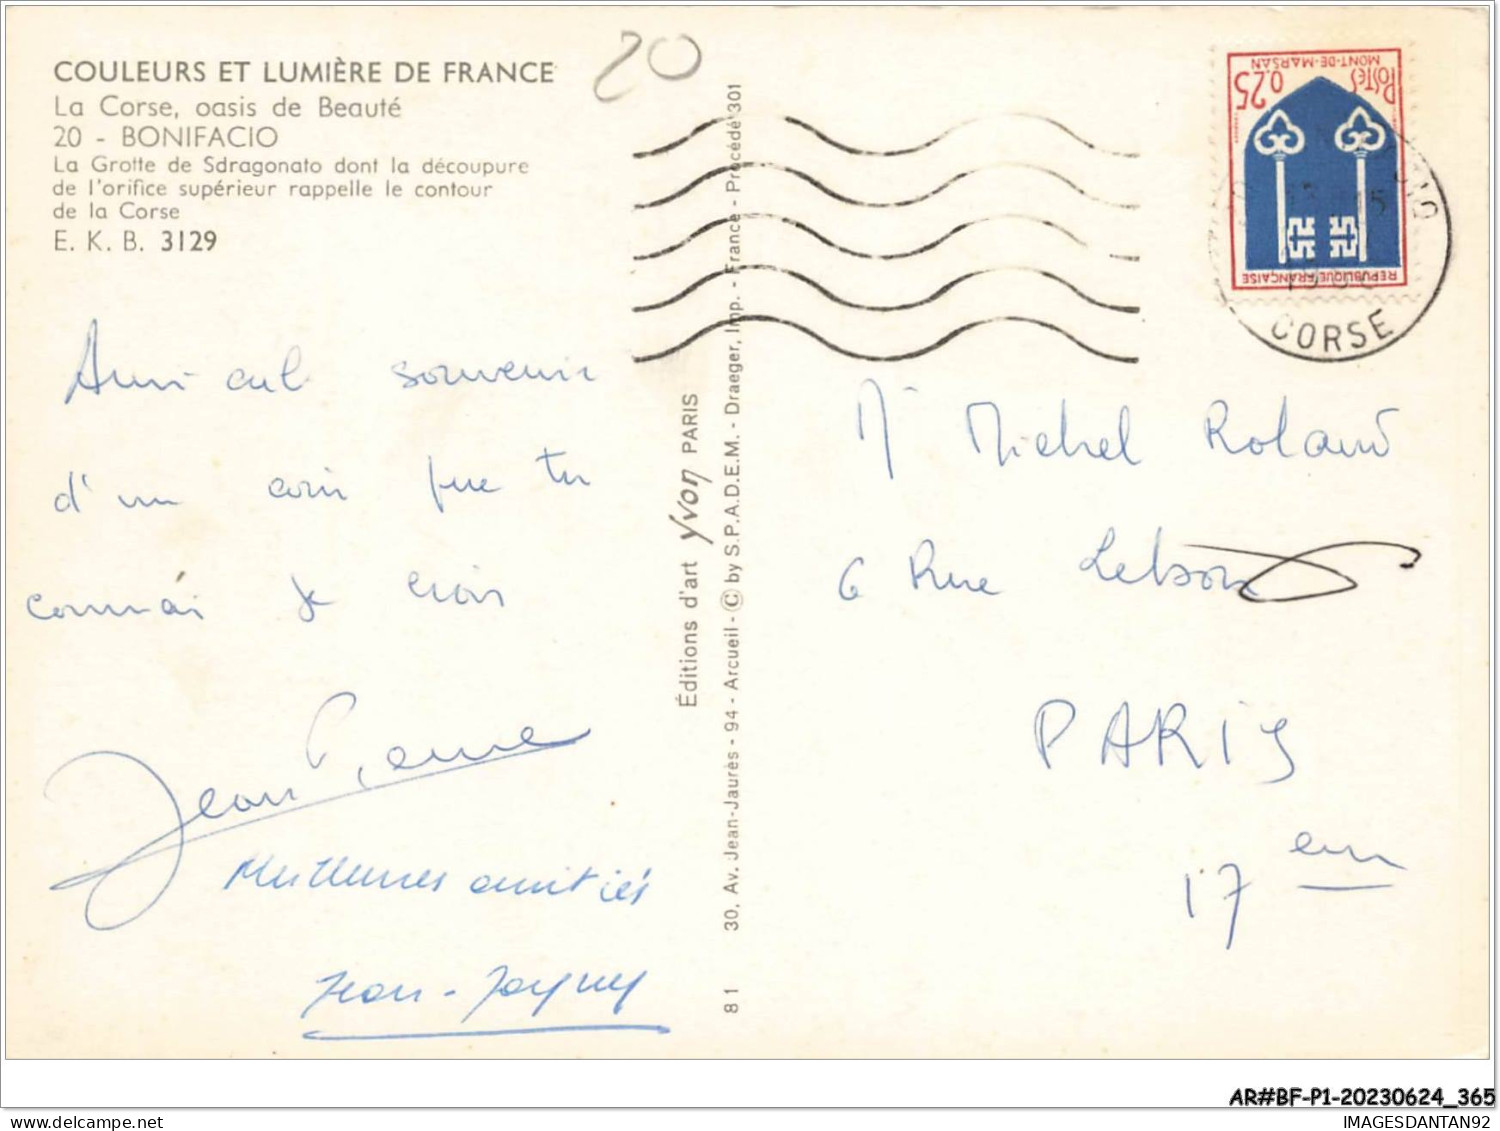 COULEURS ET LUMIÈRE DE FRANCE
La Corse, oasis de Beauté
20 - BONIFACIO
La Grotte de Sdragonato dont la découpure
de l'orifice supérieur rappelle le contour
de la Corse
E. K. B. 3129
20
Amical souvenir
d'un coin que tu
connais je crois
Jean Pierre
Meilleures amitiés
Jean-Jacques
Éditions d'art Yvon PARIS
81 30, Av. Jean-Jaurès - 94 - Arcueil - © by S.P.A.D.E.M. - Draeger, Imp. - France - Procédé 301
POSTES 0.25
MONT-DE-MARSAN
REPUBLIQUE FRANÇAISE
CORSE
Mr Michel Roland
6 Rue Lebon
PARIS
17 em
AR#BF-P1-20230624_365
delcampe.net
IMAGESDANTAN92